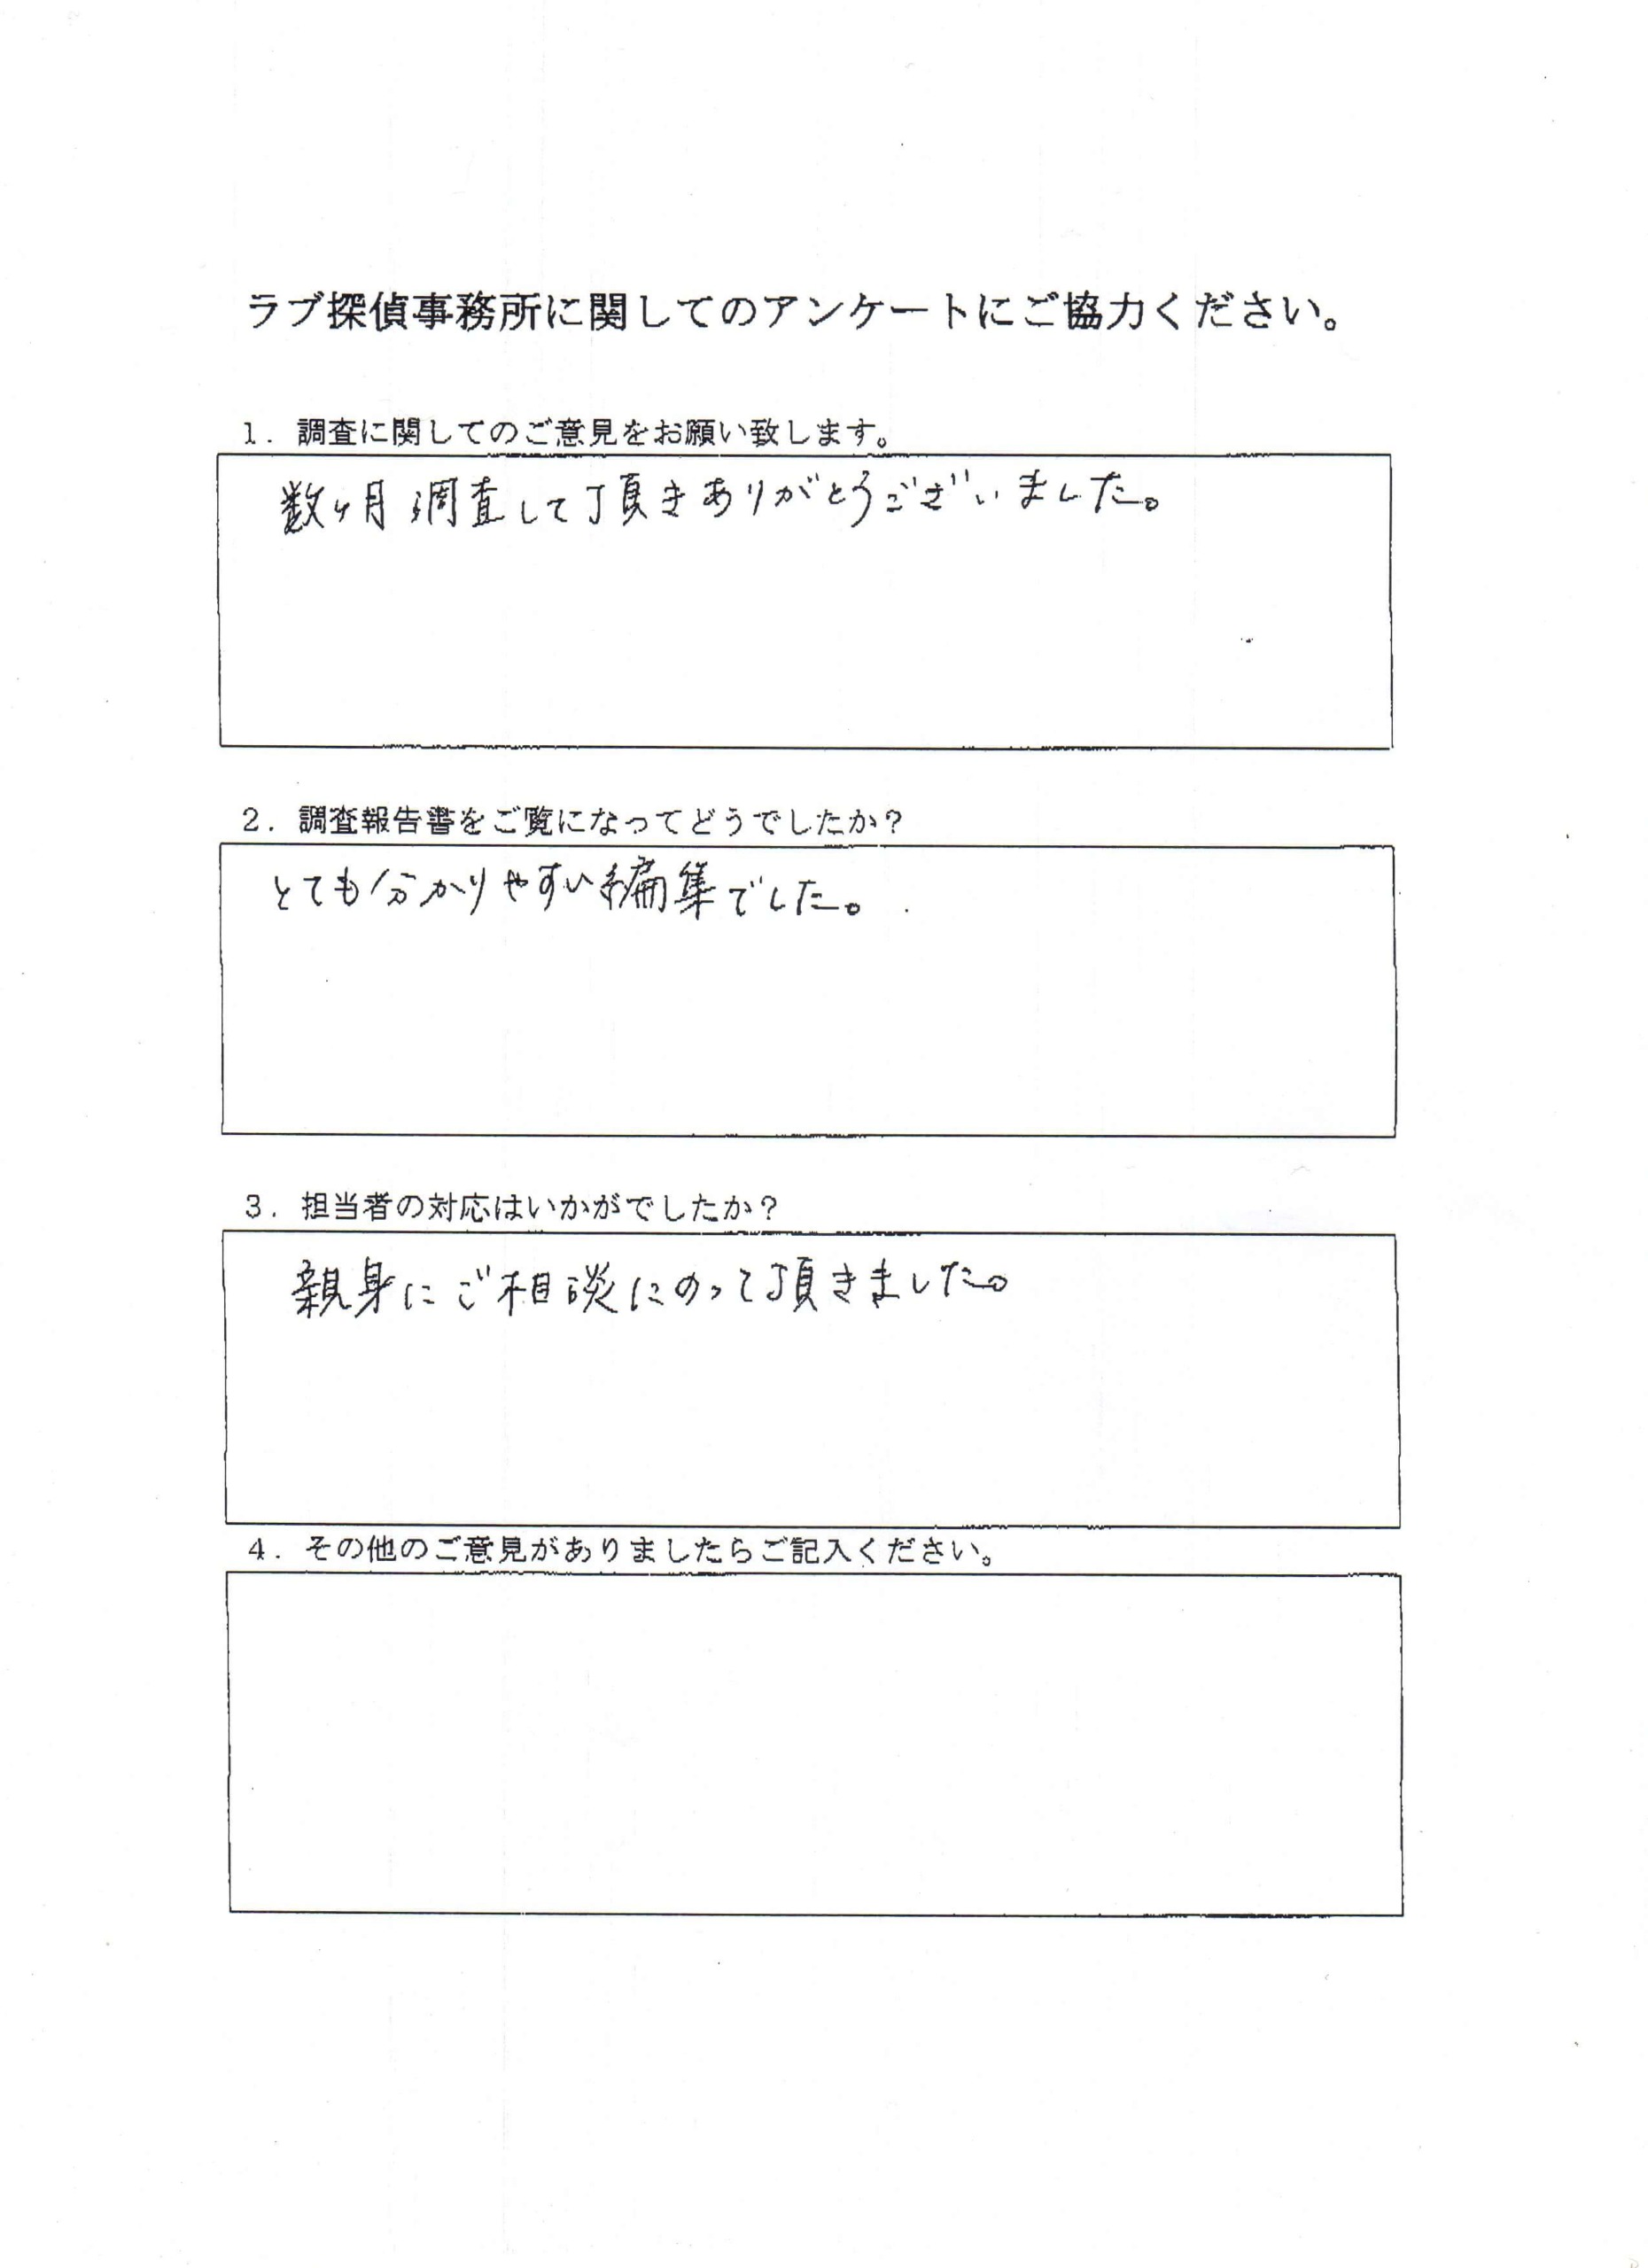 ラブ探偵事務所に関してのアンケートにご協力ください。
1. 調査に関してのご意見をお願い致します。
数ヶ月調査して頂きありがとうございました。
2. 調査報告書をご覧になってどうでしたか？
とても分かりやすい編集でした。
3. 担当者の対応はいかがでしたか？
親身にご相談にのって頂きました。
4. その他のご意見がありましたらご記入ください。